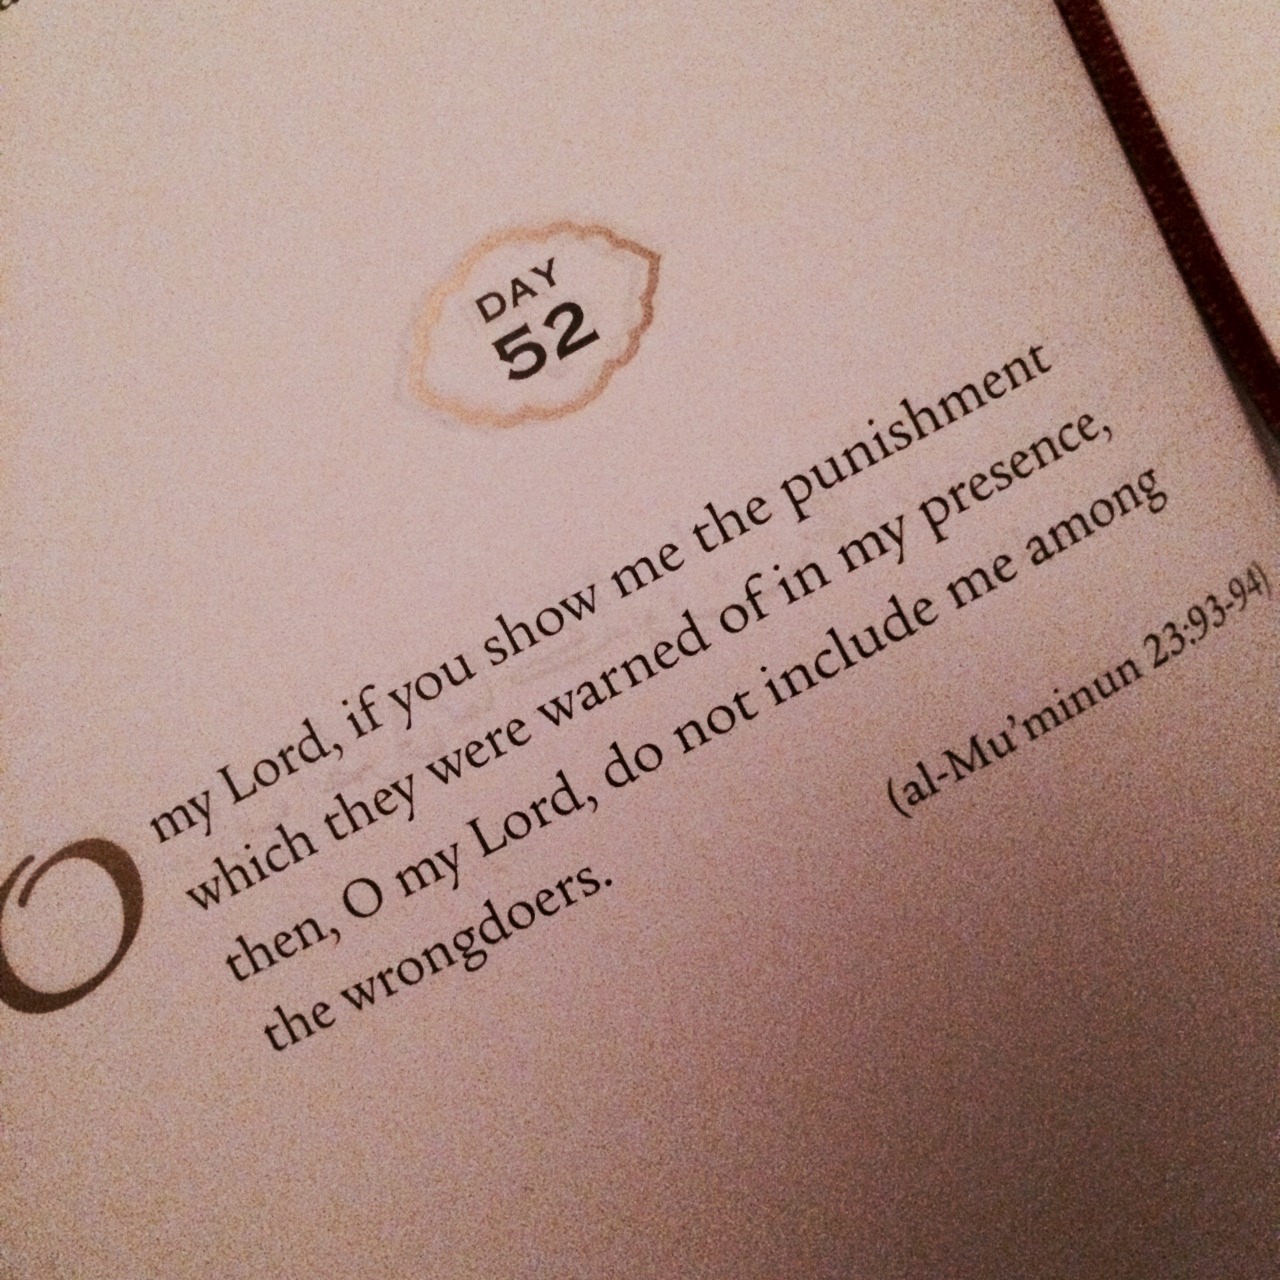 DAY
52
O my Lord, if you show me the punishment
which they were warned of in my presence,
then, O my Lord, do not include me among
the wrongdoers.
(al-Mu'minun 23:93-94)